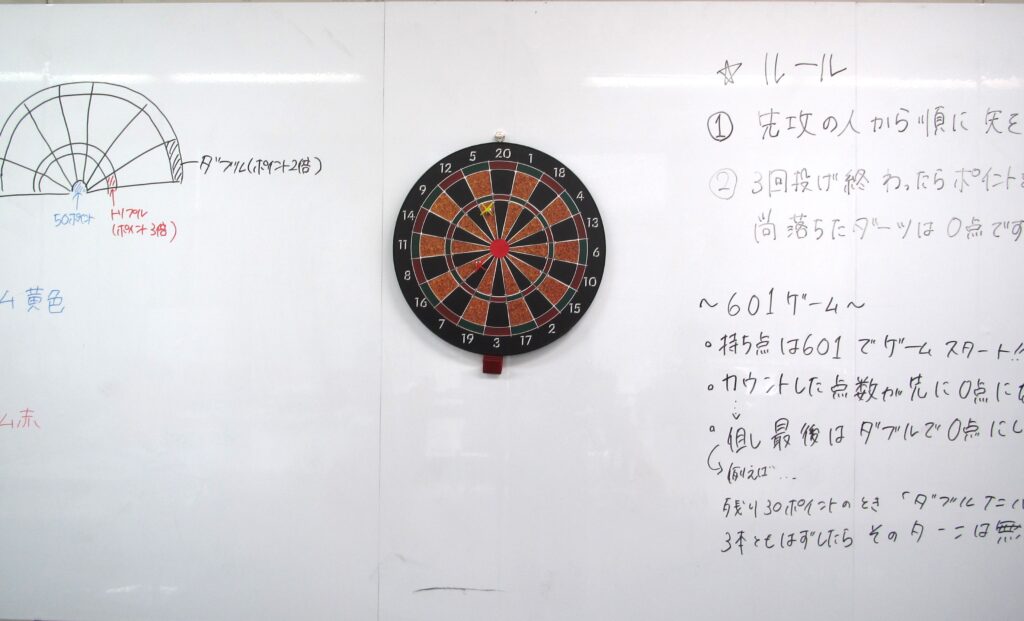 ダブル(ポイント2倍)
50ポイント
トリプル
(ポイント3倍)
ム黄色
ム赤
20
1
18
4
13
6
10
15
2
17
3
19
7
16
8
11
14
9
12
5
☆ ルール
① 先攻の人から順に矢を
② 3回投げ終わったらポイント
尚落ちたダーツは0点です
~601ゲーム~
・持ち点は601でゲームスタート!!
・カウントした点数が先に0点に
・但し最後はダブルで0点にし
例えば…
残り30ポイントのとき「ダブル
3本ともはずしたらそのターンは無